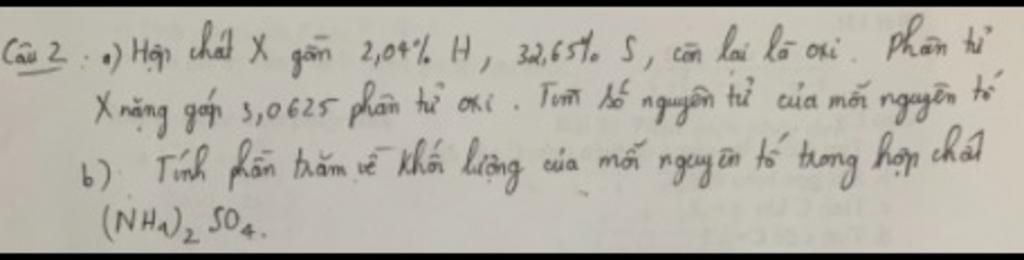 Câu 2. a) Hợp chất X gồm 2,04% H, 32,65% S, còn lại là oxi. Phân tử
X nặng gấp 3,0625 phân tử oxi. Tìm số nguyên tử của mỗi nguyên tố
b) Tính phần trăm về khối lượng của mỗi nguyên tố trong hợp chất
(NH4)2 SO4.